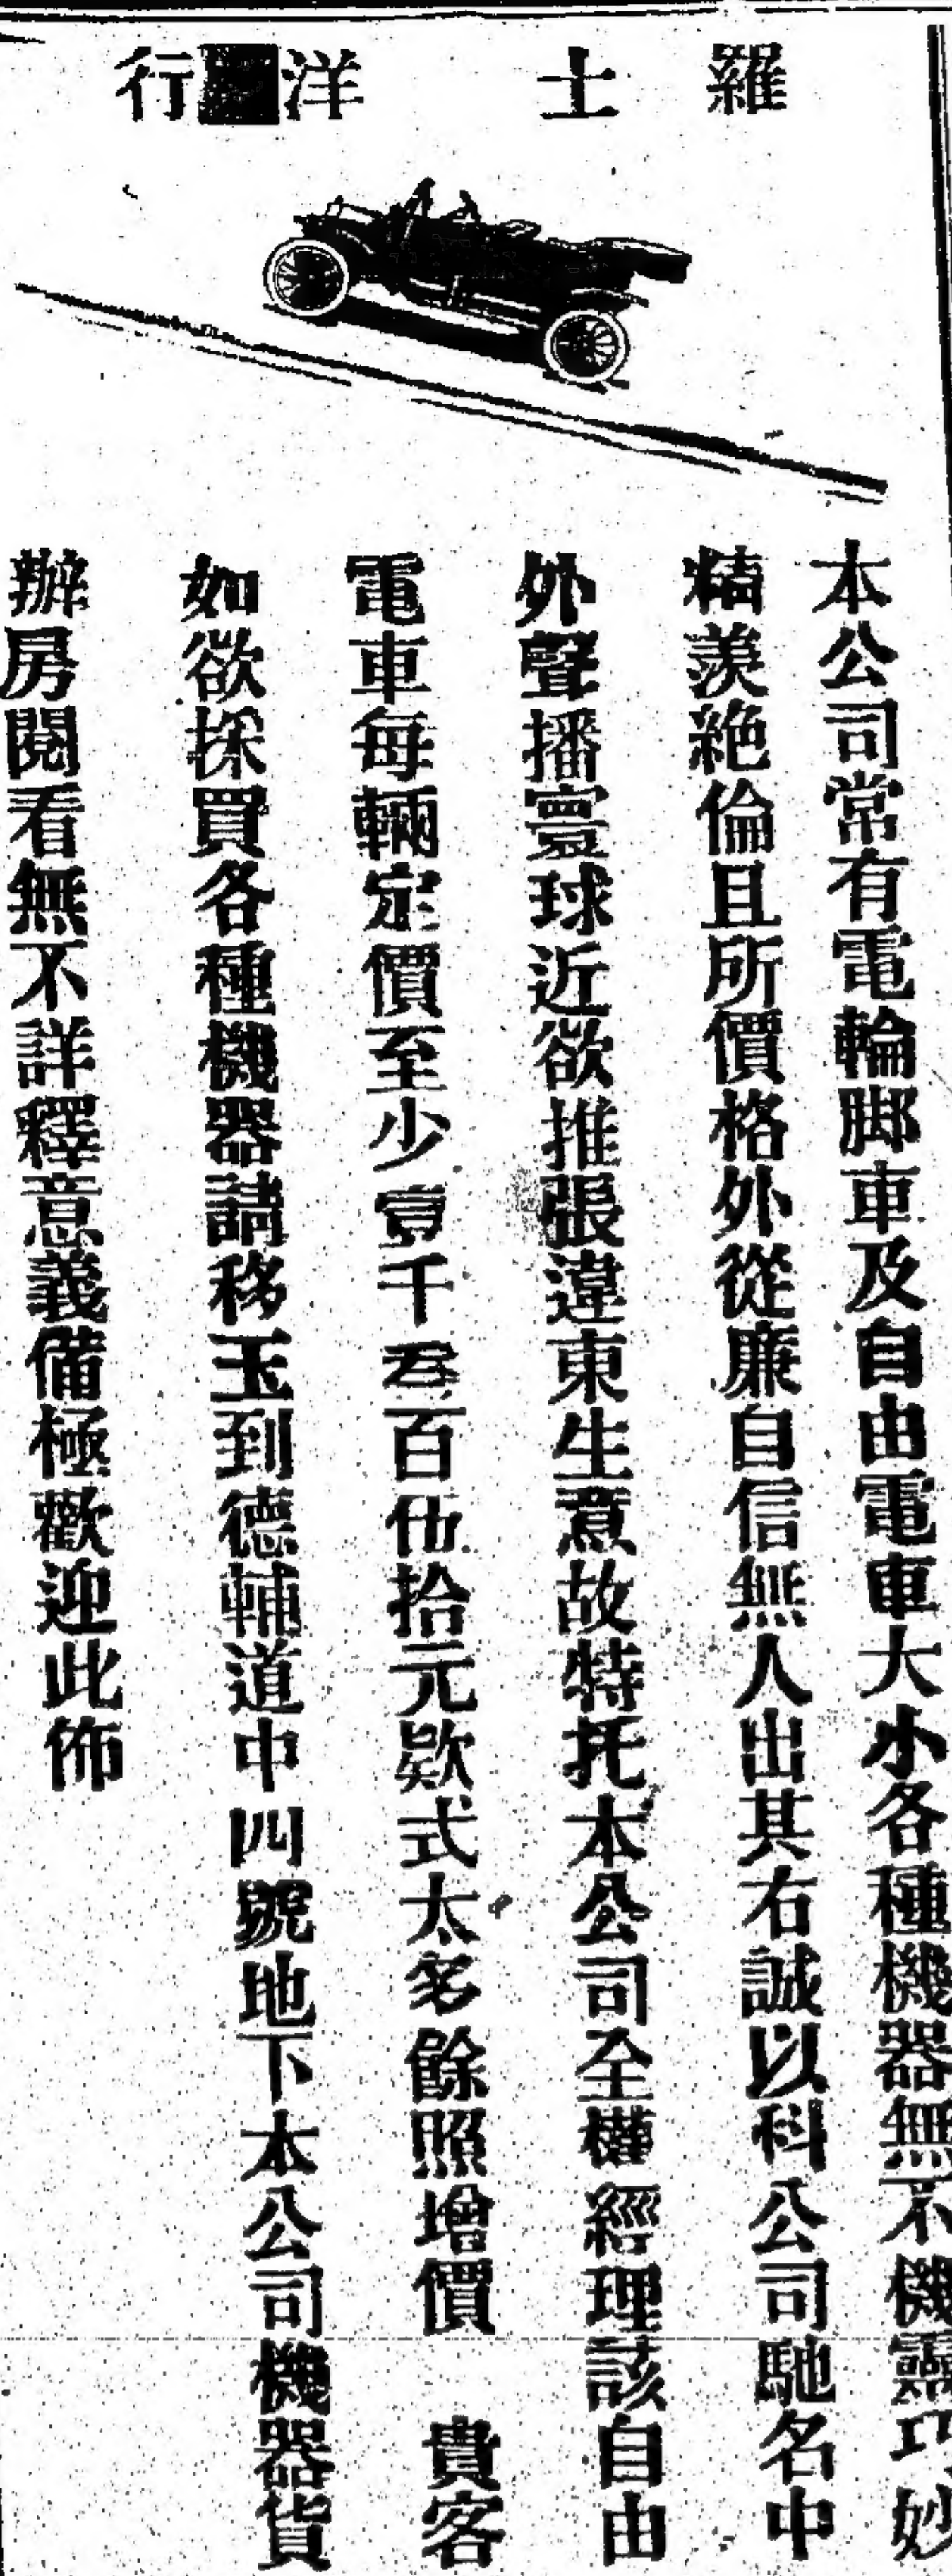 羅士洋行
本公司常有電輪脚車及自由電車大小各種機器無不機靈巧妙
精羨絶倫且所價格外從廉自信無人出其右誠以科公司馳名中
外聲播寰球近欲推張違東生意故特托本公司全權經理該自由
電車每輛定價至少壹千叁百伍拾元欵式太多餘照增價 貴客
如欲採買各種機器請移玉到德輔道中四號地下本公司機器貨
辦房閱看無不詳釋意義備極歡迎此佈